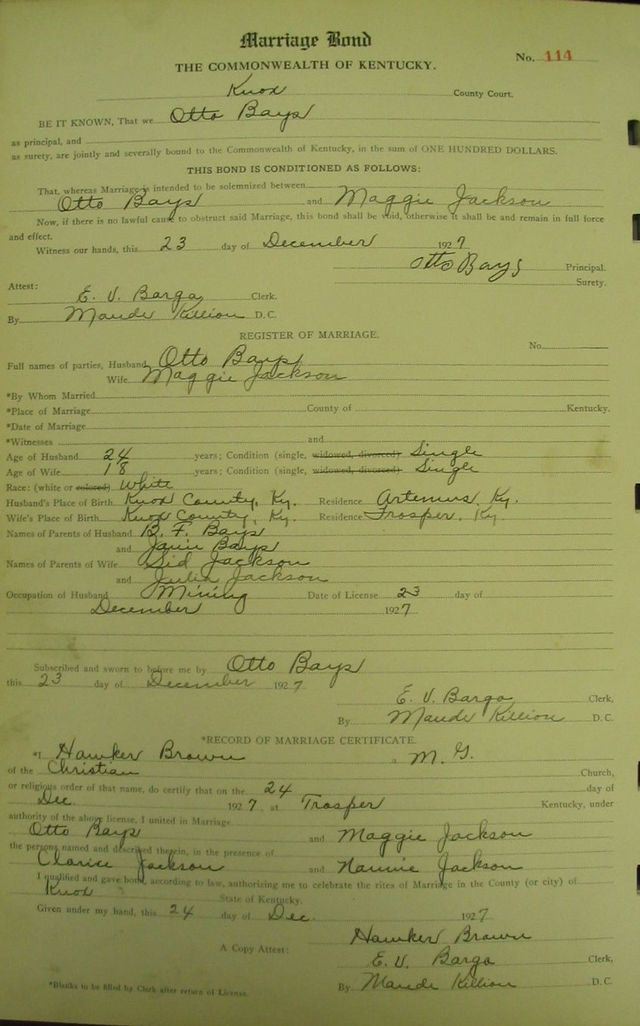 Marriage Bond
No. 114
THE COMMONWEALTH OF KENTUCKY.
Knox County Court.
BE IT KNOWN, That we Otto Bays
as principal, and
as surety, are jointly and severally bound to the Commonwealth of Kentucky, in the sum of ONE HUNDRED DOLLARS.
THIS BOND IS CONDITIONED AS FOLLOWS:
That, whereas Marriage is intended to be solemnized between
Otto Bays and Maggie Jackson
Now, if there is no lawful cause to obstruct said Marriage, this bond shall be void, otherwise it shall be and remain in full force
and effect.
Witness our hands, this 23 day of December 1927
Otto Bays Principal.
Surety.
Attest:
E. V. Bargo Clerk.
By Maude Killion D. C.
REGISTER OF MARRIAGE.
No.
Full names of parties, Husband Otto Bays
Wife Maggie Jackson
*By Whom Married
*Place of Marriage County of Kentucky.
*Date of Marriage
*Witnesses and
Age of Husband 24 years; Condition (single, widowed, divorced) Single
Age of Wife 18 years; Condition (single, widowed, divorced) Single
Race: (white or colored) White
Husband's Place of Birth Knox County, Ky. Residence Artemus, Ky.
Wife's Place of Birth Knox County, Ky. Residence Trosper, Ky.
Names of Parents of Husband B. F. Bays
and Janie Bays
Names of Parents of Wife Sid Jackson
and Julia Jackson
Occupation of Husband Mining Date of License 23 day of
December 1927
Subscribed and sworn to before me by Otto Bays
this 23 day of December 1927
E. V. Bargo Clerk,
By Maude Killion D. C.
*RECORD OF MARRIAGE CERTIFICATE.
*I Hawker Brown a M. G.
of the Christian Church,
or religious order of that name, do certify that on the 24 day of
Dec. 1927 at Trosper Kentucky, under
authority of the above license, I united in Marriage
Otto Bays and Maggie Jackson
the persons named and described therein, in the presence of
Clarice Jackson and Nannie Jackson
I qualified and gave bond, according to law, authorizing me to celebrate the rites of Marriage in the County (or city) of
Knox State of Kentucky.
Given under my hand, this 24 day of Dec. 1927
Hawker Brown
A Copy Attest: E. V. Bargo Clerk,
By Maude Killion D. C.
*Blanks to be filled by Clerk after return of License.